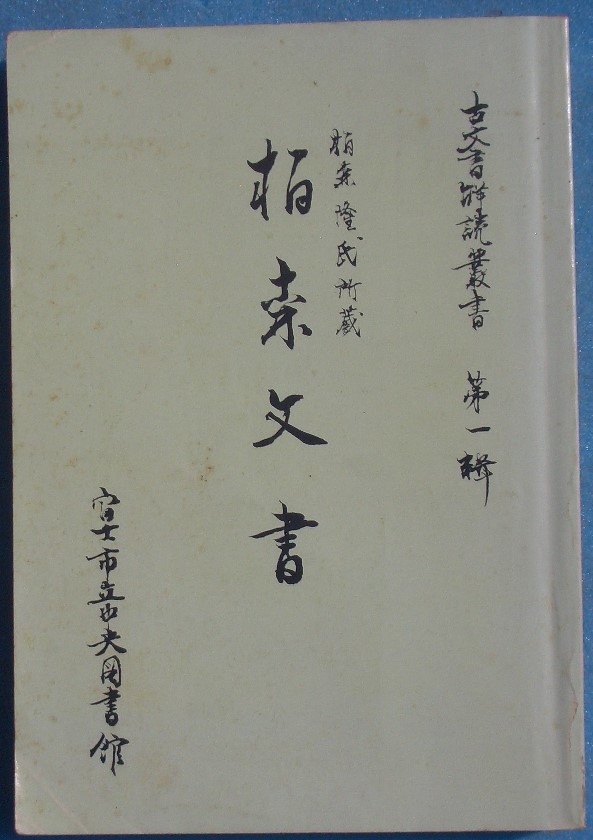 古文書解読叢書 第一輯
栢森隆氏所蔵
栢森文書
富士市立中央図書館